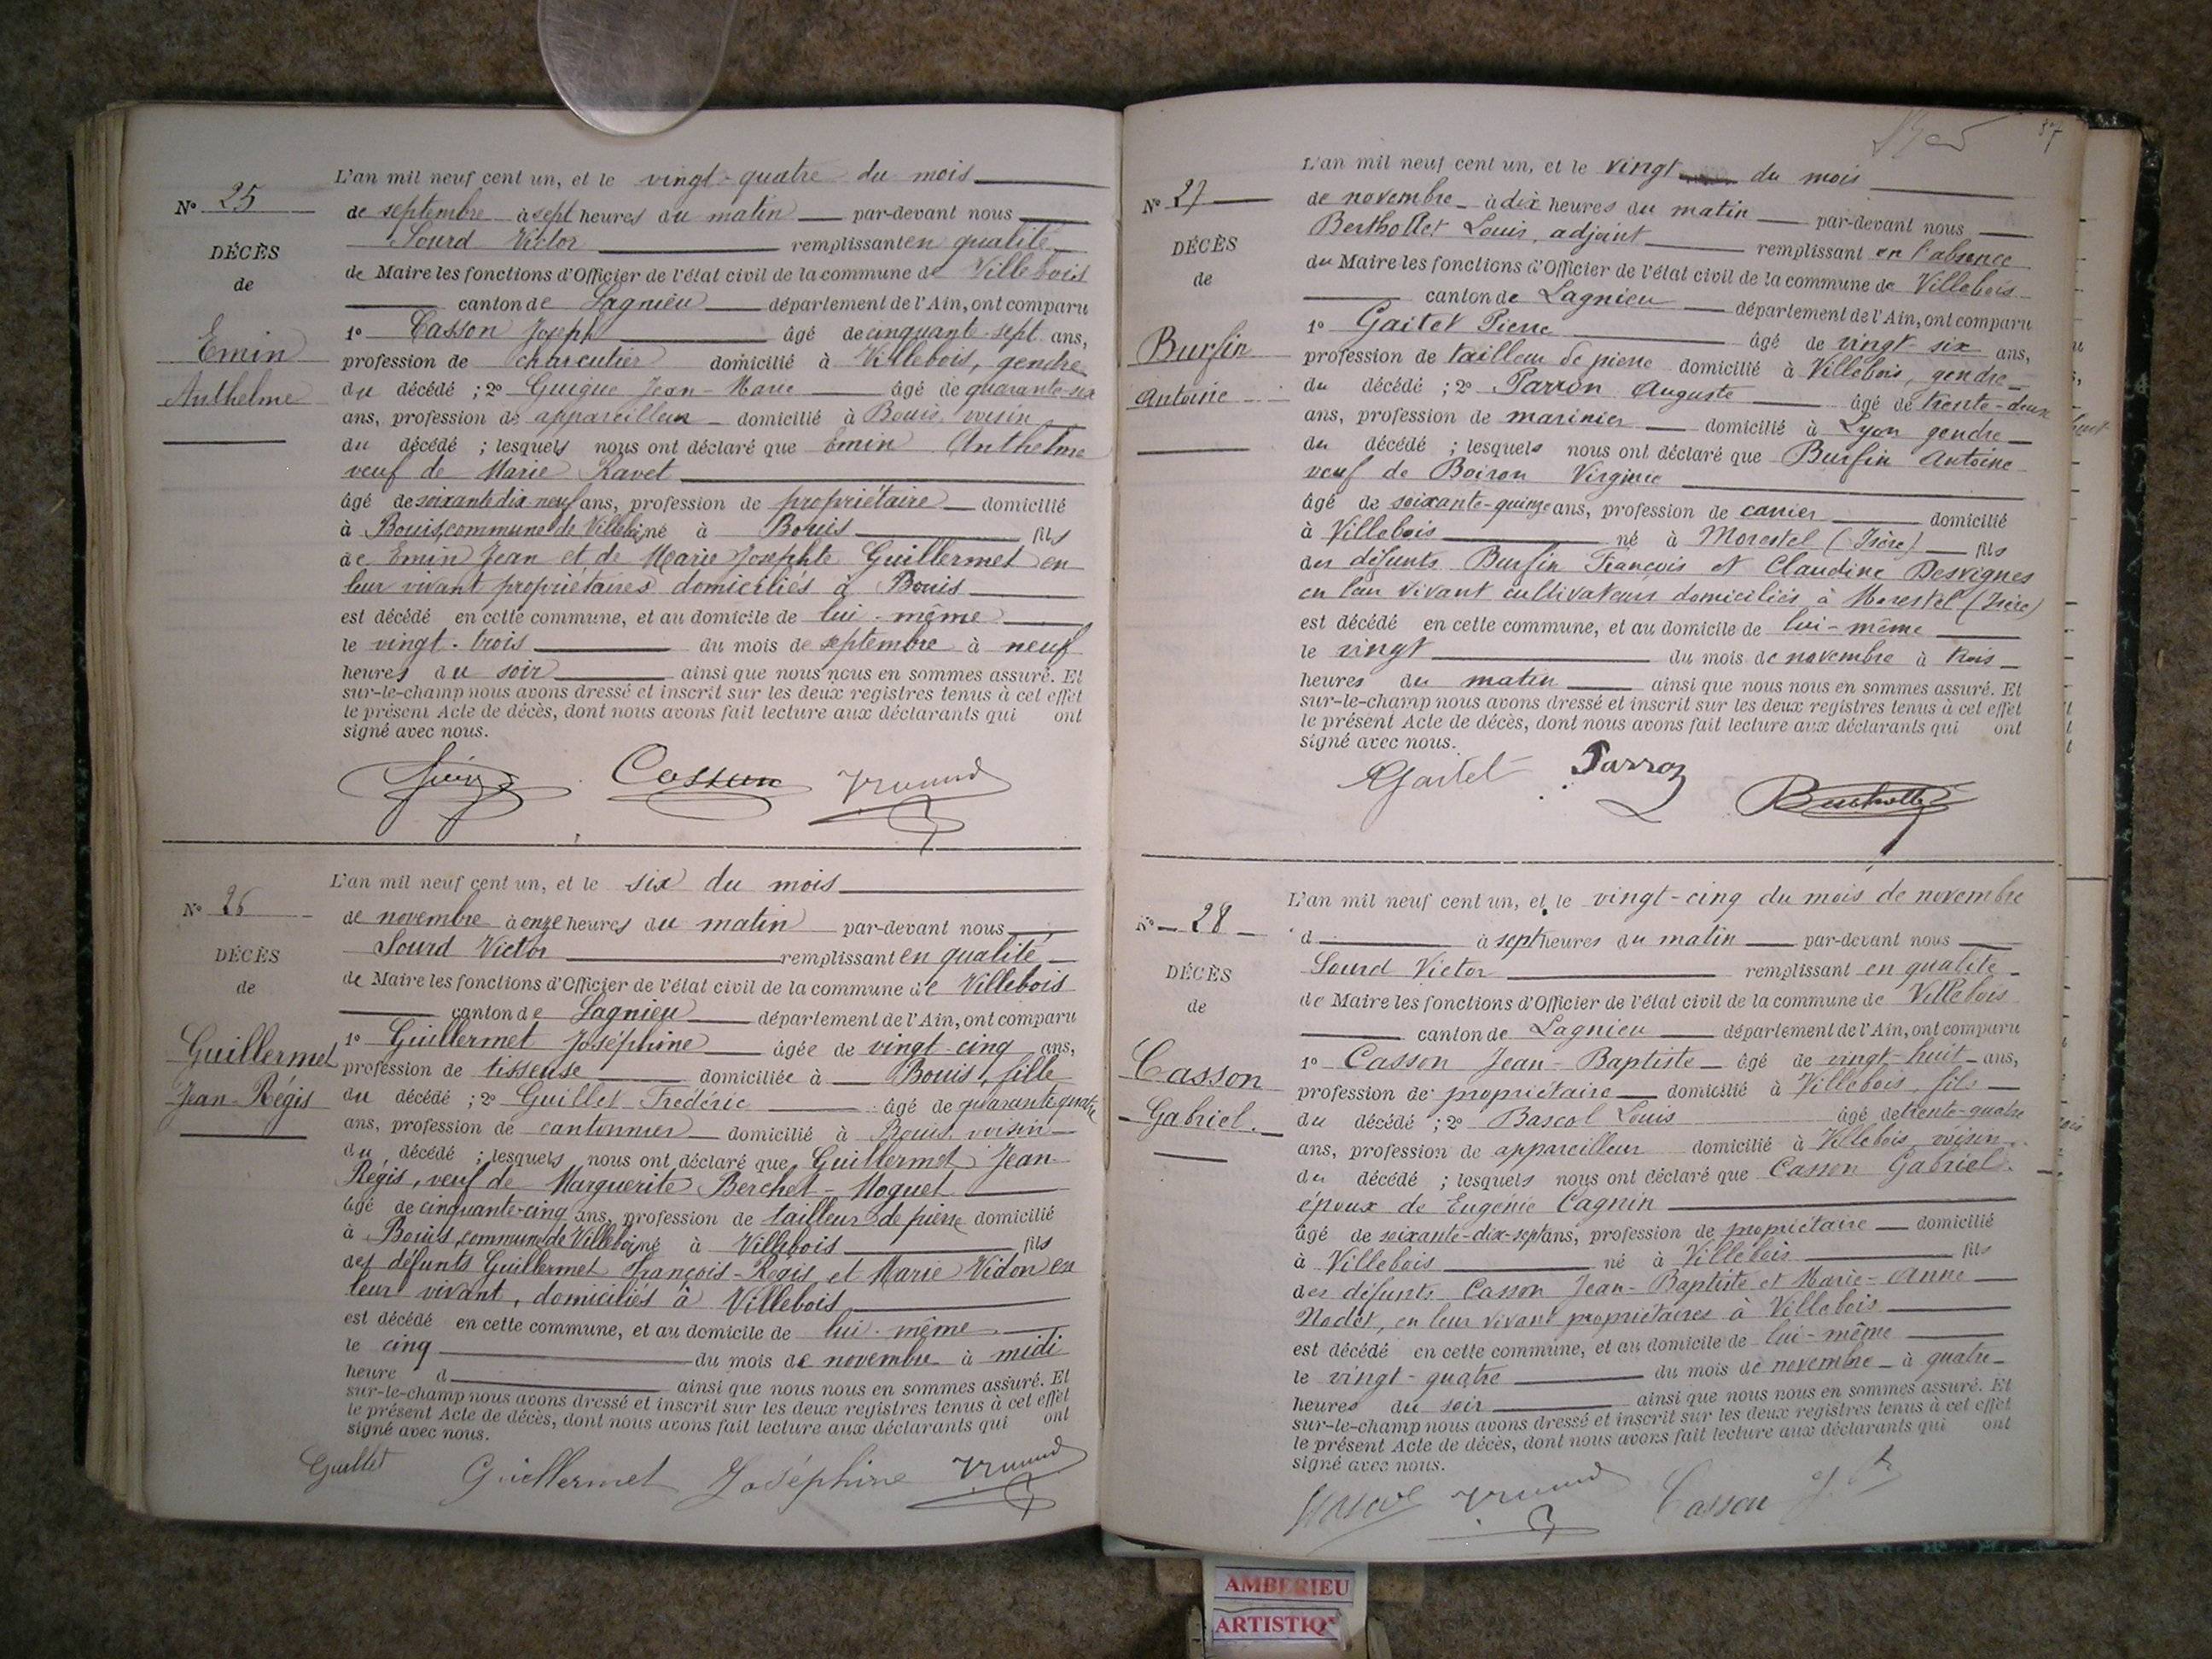 N° 25
DÉCÈS
de
Emin
Anthelme
L'an mil neuf cent un, et le vingt-quatre du mois
de septembre à sept heures du matin par-devant nous
Sourd Victor remplissant en qualité
de Maire les fonctions d'Officier de l'état civil de la commune de Villebois
canton de Lagnieu département de l'Ain, ont comparu
1° Casson Joseph âgé de cinquante-sept ans,
profession de charcutier domicilié à Villebois, gendre
du décédé ; 2° Guigue Jean-Marie âgé de quarante-six
ans, profession de appareilleur domicilié à Bouis, voisin
du décédé ; lesquels nous ont déclaré que Emin Anthelme
veuf de Marie Ravet
âgé de soixante dix-neuf ans, profession de propriétaire domicilié
à Bouis, commune de Villebois né à Bouis fils
de Emin Jean et de Marie Josephte Guillermet en
leur vivant propriétaires domiciliés à Bouis
est décédé en cette commune, et au domicile de lui-même
le vingt-trois du mois de septembre à neuf
heures du soir ainsi que nous nous en sommes assuré. Et
sur-le-champ nous avons dressé et inscrit sur les deux registres tenus à cet effet
le présent Acte de décès, dont nous avons fait lecture aux déclarants qui ont
signé avec nous.
Casson
N° 26
DÉCÈS
de
Guillermet
Jean-Régis
L'an mil neuf cent un, et le six du mois
de novembre à onze heures du matin par-devant nous
Sourd Victor remplissant en qualité
de Maire les fonctions d'Officier de l'état civil de la commune de Villebois
canton de Lagnieu département de l'Ain, ont comparu
1° Guillermet Joséphine âgée de vingt-cinq ans,
profession de tisseuse domiciliée à Bouis, fille
du décédé ; 2° Guillet Frédéric âgé de quarante quatre
ans, profession de cantonnier domicilié à Bouis, voisin
du décédé ; lesquels nous ont déclaré que Guillermet Jean
Régis, veuf de Marguerite Berchet-Moguet
âgé de cinquante-cinq ans, profession de tailleur de pierre domicilié
à Bouis, commune de Villebois né à Villebois fils
des défunts Guillermet François-Régis et Marie Vidon en
leur vivant, domiciliés à Villebois
est décédé en cette commune, et au domicile de lui-même
le cinq du mois de novembre à midi
heure d ainsi que nous nous en sommes assuré. Et
sur-le-champ nous avons dressé et inscrit sur les deux registres tenus à cet effet
le présent Acte de décès, dont nous avons fait lecture aux déclarants qui ont
signé avec nous.
Guillet Guillermet Joséphine
87
N° 27
DÉCÈS
de
Burfin
Antoine
L'an mil neuf cent un, et le vingt du mois
de novembre à dix heures du matin par-devant nous
Berthollet Louis, adjoint remplissant en l'absence
du Maire les fonctions d'Officier de l'état civil de la commune de Villebois
canton de Lagnieu département de l'Ain, ont comparu
1° Gaitet Pierre âgé de vingt six ans,
profession de tailleur de pierre domicilié à Villebois, gendre
du décédé ; 2° Parron Auguste âgé de trente-deux
ans, profession de marinier domicilié à Lyon gendre
du décédé ; lesquels nous ont déclaré que Burfin Antoine
veuf de Boiron Virginie
âgé de soixante-quinze ans, profession de carrier domicilié
à Villebois né à Morestel (Isère) fils
des défunts Burfin François et Claudine Desvignes
en leur vivant cultivateurs domiciliés à Morestel (Isère)
est décédé en cette commune, et au domicile de lui-même
le vingt du mois de novembre à trois
heures du matin ainsi que nous nous en sommes assuré. Et
sur-le-champ nous avons dressé et inscrit sur les deux registres tenus à cet effet
le présent Acte de décès, dont nous avons fait lecture aux déclarants qui ont
signé avec nous.
Gaitet Parron Berthollet
N° 28
DÉCÈS
de
Casson
Gabriel.
L'an mil neuf cent un, et le vingt-cinq du mois de novembre
d à sept heures du matin par-devant nous
Sourd Victor remplissant en qualité
de Maire les fonctions d'Officier de l'état civil de la commune de Villebois
canton de Lagnieu département de l'Ain, ont comparu
1° Casson Jean-Baptiste âgé de vingt-huit ans,
profession de propriétaire domicilié à Villebois, fils
du décédé ; 2° Bascol Louis âgé de trente-quatre
ans, profession de appareilleur domicilié à Villebois, voisin
du décédé ; lesquels nous ont déclaré que Casson Gabriel.
époux de Eugénie Cagnin
âgé de soixante-dix-sept ans, profession de propriétaire domicilié
à Villebois né à Villebois fils
des défunts Casson Jean-Baptiste et Marie-Anne
Nodet, en leur vivant propriétaires à Villebois
est décédé en cette commune, et au domicile de lui-même
le vingt-quatre du mois de novembre à quatre
heures du soir ainsi que nous nous en sommes assuré. Et
sur-le-champ nous avons dressé et inscrit sur les deux registres tenus à cet effet
le présent Acte de décès, dont nous avons fait lecture aux déclarants qui ont
signé avec nous.
Bascol Casson
AMBERIEU
ARTISTIQ